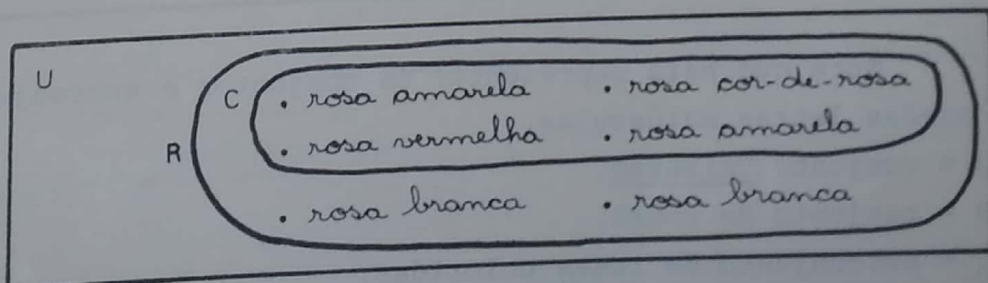 U
C • rosa amarela • rosa cor-de-rosa
R • rosa vermelha • rosa amarela
• rosa branca • rosa branca